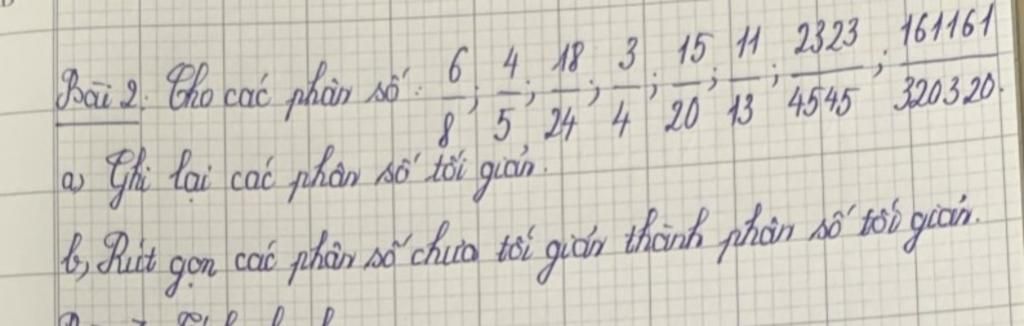 Bài 2. Cho các phân số: 6/8; 4/5; 18/24; 3/4; 15/20; 11/13; 2323/4545; 161161/320320.
a) Ghi lại các phân số tối giản.
b, Rút gọn các phân số chưa tối giản thành phân số tối giản.